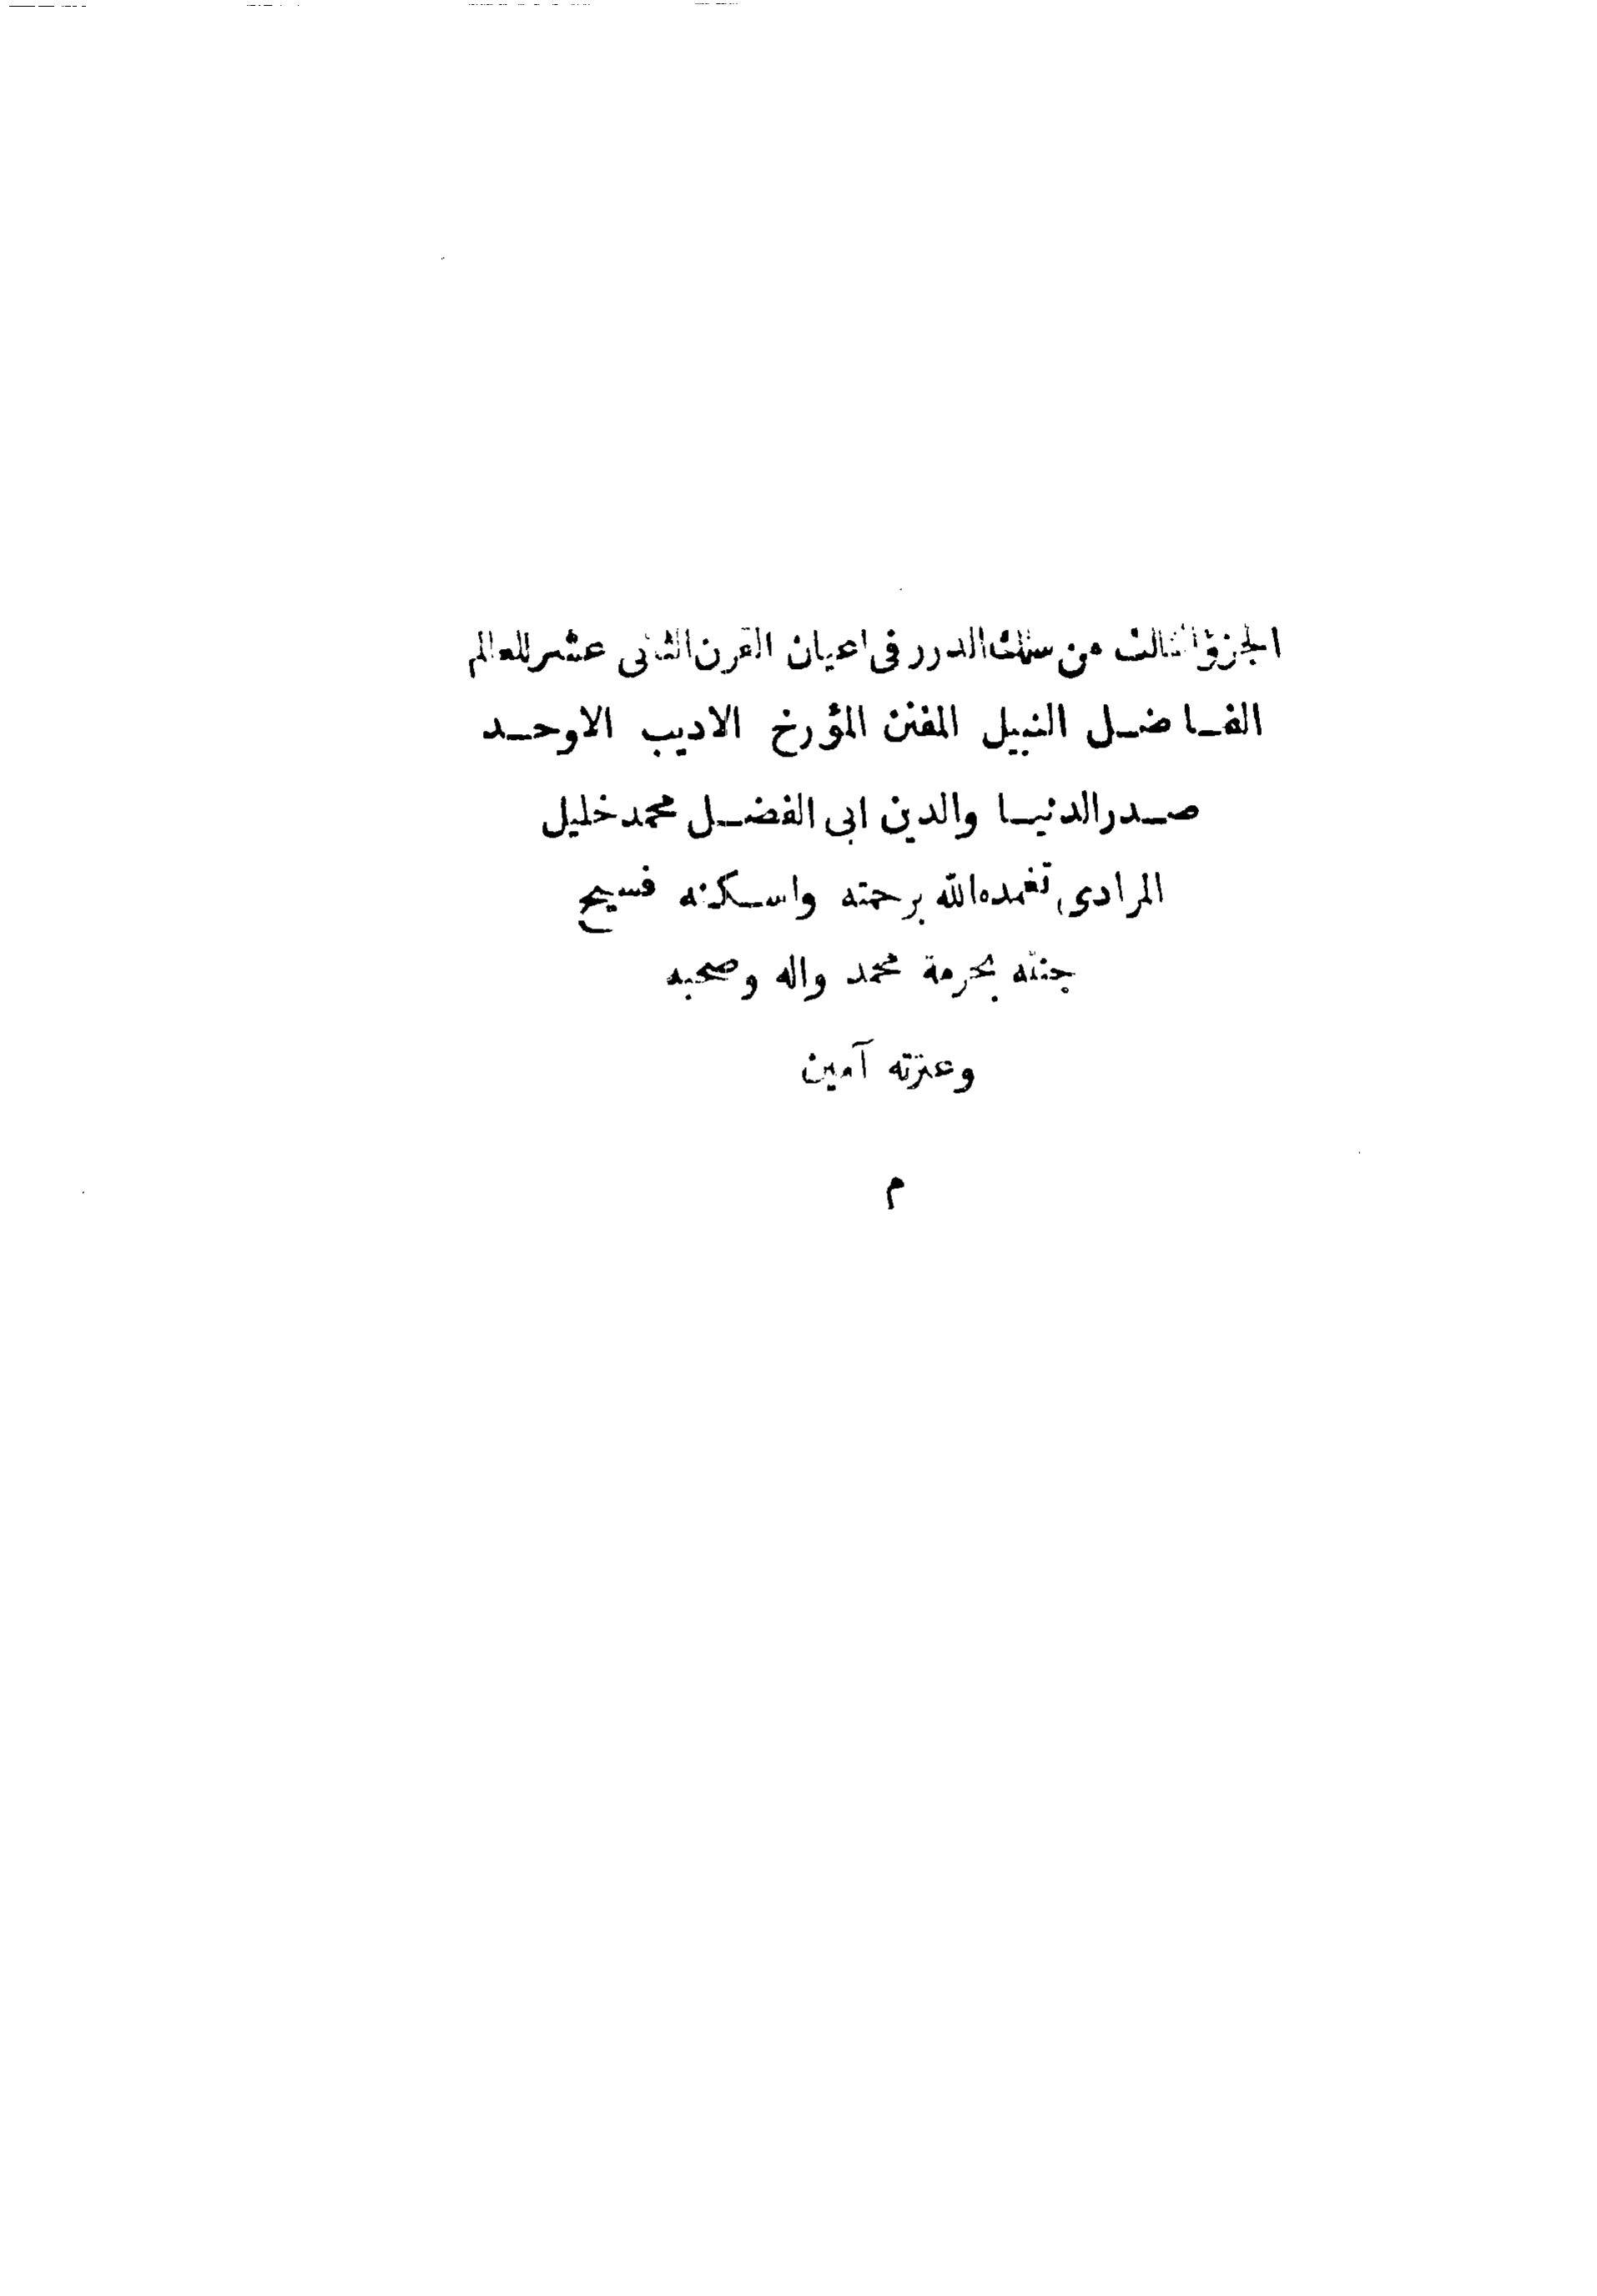 الجزؤ الثالث من سلك الدرر فى اعيان القرن الثانى عشر للعالم
الفاضل النبيل المفنن المؤرخ الاديب الاوحد
صدر الدنيا والدين ابى الفضل محمد خليل
المرادى تغمده الله برحمته واسكنه فسيح
جنته بحرمة محمد واله وصحبه
وعترته آمين
م